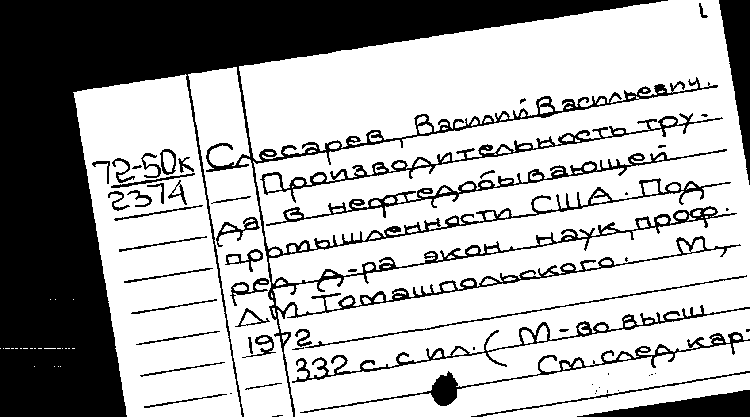 1
72-50к
2374
Слесарев, Василий Васильевич.
Производительность тру-
да в нефтедобывающей
промышленности США. Под
ред. д-ра экон. наук, проф.
Л.М. Томашпольского. М.,
1972.
332 с. с ил. (М-во высш
См. след. кар-